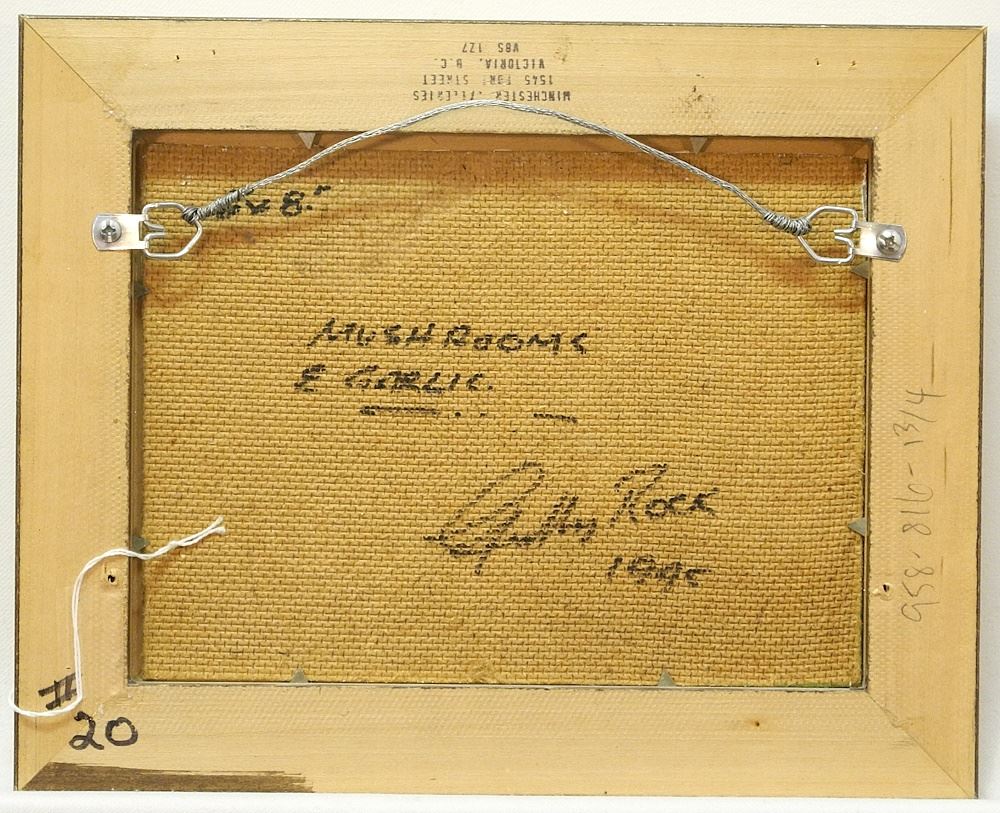 WINCHESTER GALLERIES
1545 FORT STREET
VICTORIA, B.C.
V8S 1Z7
x 8."
MUSHROOMS
& GARLIC.
Geoffrey Rock
958-816-13/4
#
20